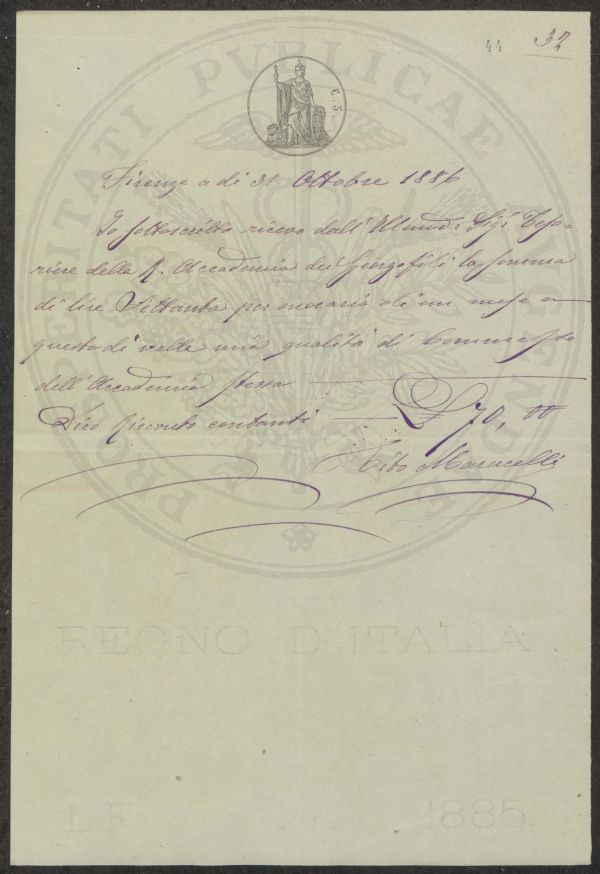 44 32
PROSPERITATI PVBLICAE AVGENDAE
C. 5.
Firenze a dì 31 Ottobre 1886
Io sottoscritto ricevo dall' Illmo Sigr Teso-
riere della R. Accademia dei Georgofili la somma
di lire Settanta per onorario di un mese a
questo dì nella mia qualità di Commesso
dell' Accademia stessa
Dico Ricevuto contanti £ 70, 00
Tito Marucelli
REGNO D'ITALIA
L F 1885